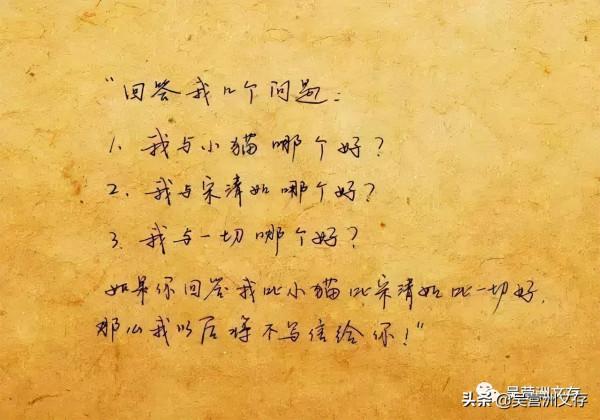 “回答我几个问题：
1. 我与小猫哪个好？
2. 我与宋清如哪个好？
3. 我与一切哪个好？
如果你回答我比小猫比宋清如比一切好，
那么我以后将不写信给你！”
吴营洲文存
头条@吴营洲文存